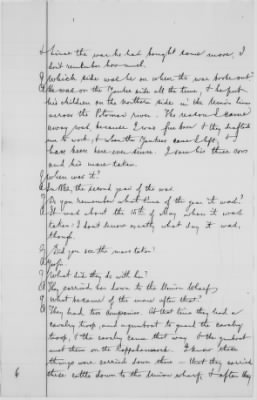 & since the war he had bought some more, I
don't remember how much.
Q Which side was he on when the war broke out?
A He was on the Yankee side all the time, & he put
his children on the northern side in the Union lines
across the Potomac river. The reason I came
away was, because I was free born & they pressed
me to work, & when the Yankees came I left, &
have been here ever since. I saw his three cows
and his mare taken.
Q When was it?
A In the second year of the war.
Q Do you remember what time of the year it was?
A It was about the 10th of May when it was
taken: I don't know exactly what day it was,
though.
Q Did you see the mare taken?
A Yes.
Q What did they do with her?
A They carried her down to the Union wharf,
Q What became of the mare after that?
A They had two companies. At that time they had a
cavalry troop, and a gunboat to guard the cavalry
troop, & the cavalry came that way & the gunboat
met them on the Rappahannock. I know these
things were carried down there - that they carried
these cattle down to the Union wharf, & after they
6